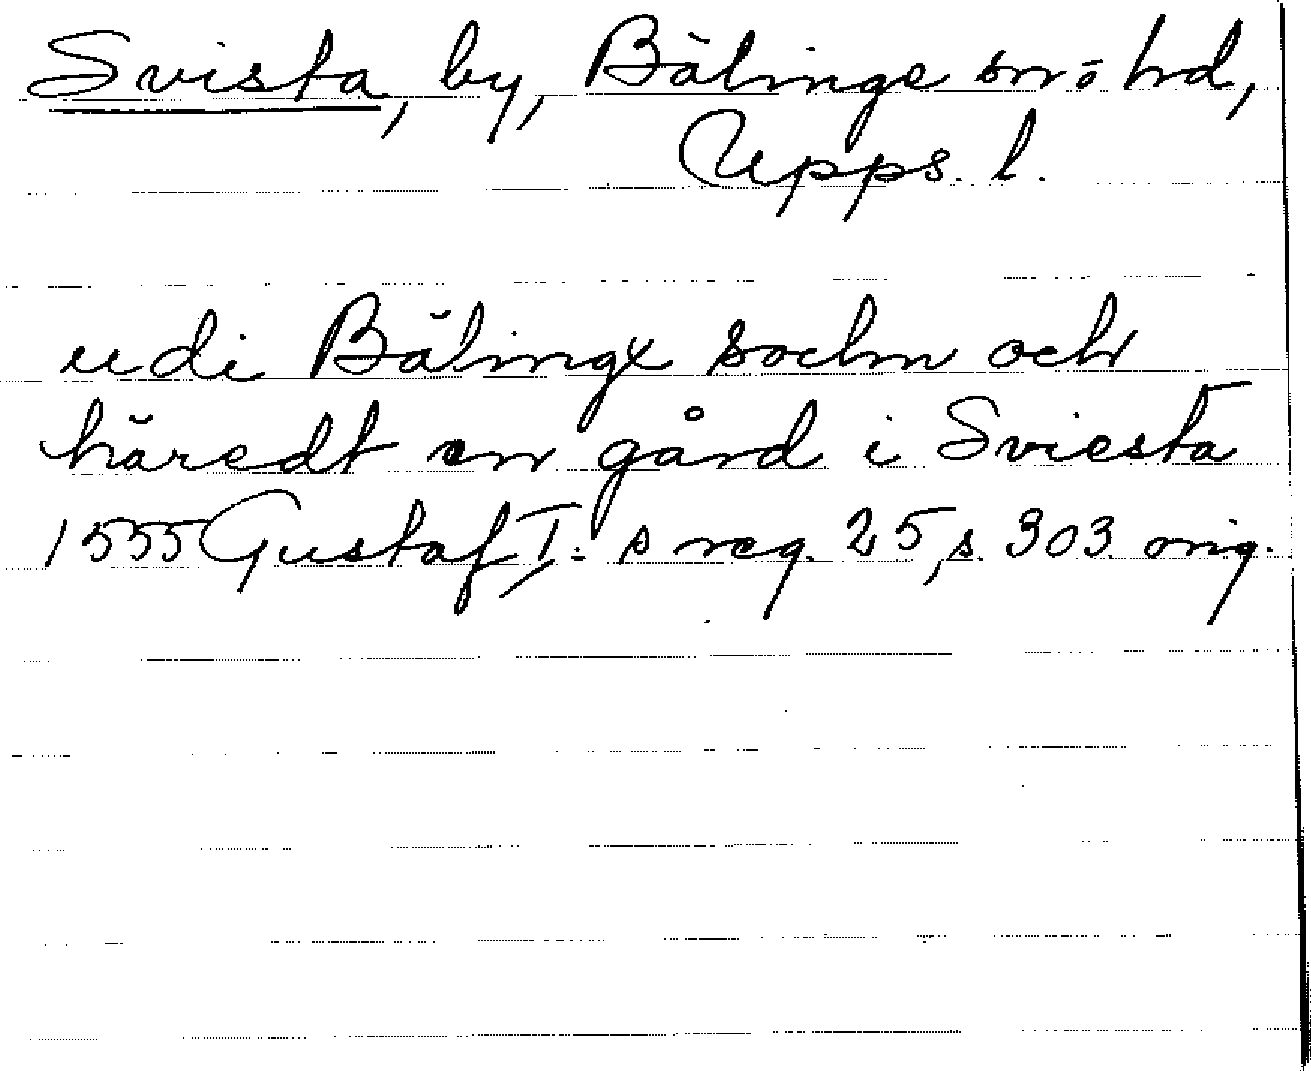 Svista, by, Bälinge sn o hd,
Upps. l.
udi Bälinge sochn och
häredt en gård i Sviesta
1555 Gustaf I:s reg. 25, s. 303 orig.